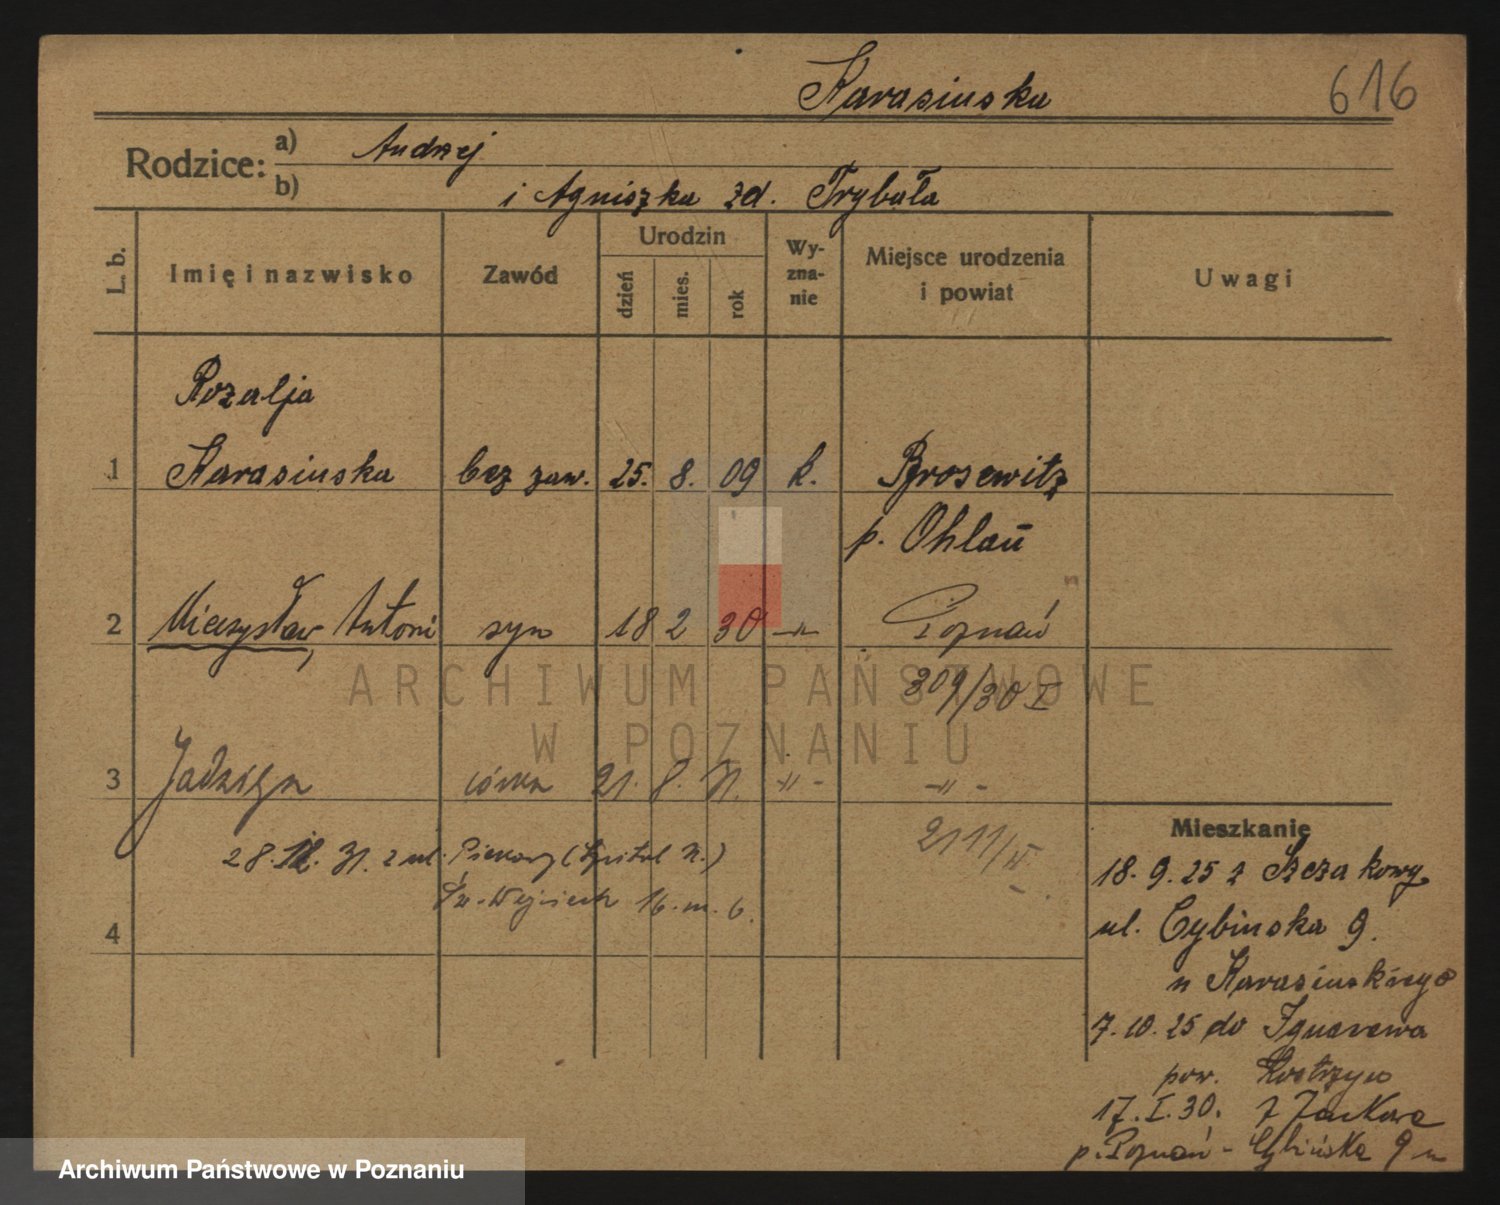 Karasinska
616
Rodzice:
a) Andrzej
b) i Agniszka zd. Trybała
L. b.
Imię i nazwisko
Zawód
Urodzin
dzień
mies.
rok
Wy-
zna-
nie
Miejsce urodzenia
i powiat
Uwagi
Rozalja
1 Karasinska bez zaw. 25. 8. 09 k. Brosewitz
p. Ohlau
2 Mieczysław, Antoni syn 18 2 30 -"- Poznań
309/30 I
ARCHIWUM PAŃSTWOWE
W POZNANIU
3 Jadwiga córka 21. 8. 31. -"- -"-
2111/
28. 31. z ul. Piekary (Szpital)
Św. Wojciech 16. m. 6.
4
Mieszkanie
18. 9. 25 z Szczakowy
ul. Cybinska 9.
u Karasinskiego
7. 10. 25 do
pow. Kostrzyn
17. I. 30. z
p. Poznań - Cybińska 9
Archiwum Państwowe w Poznaniu